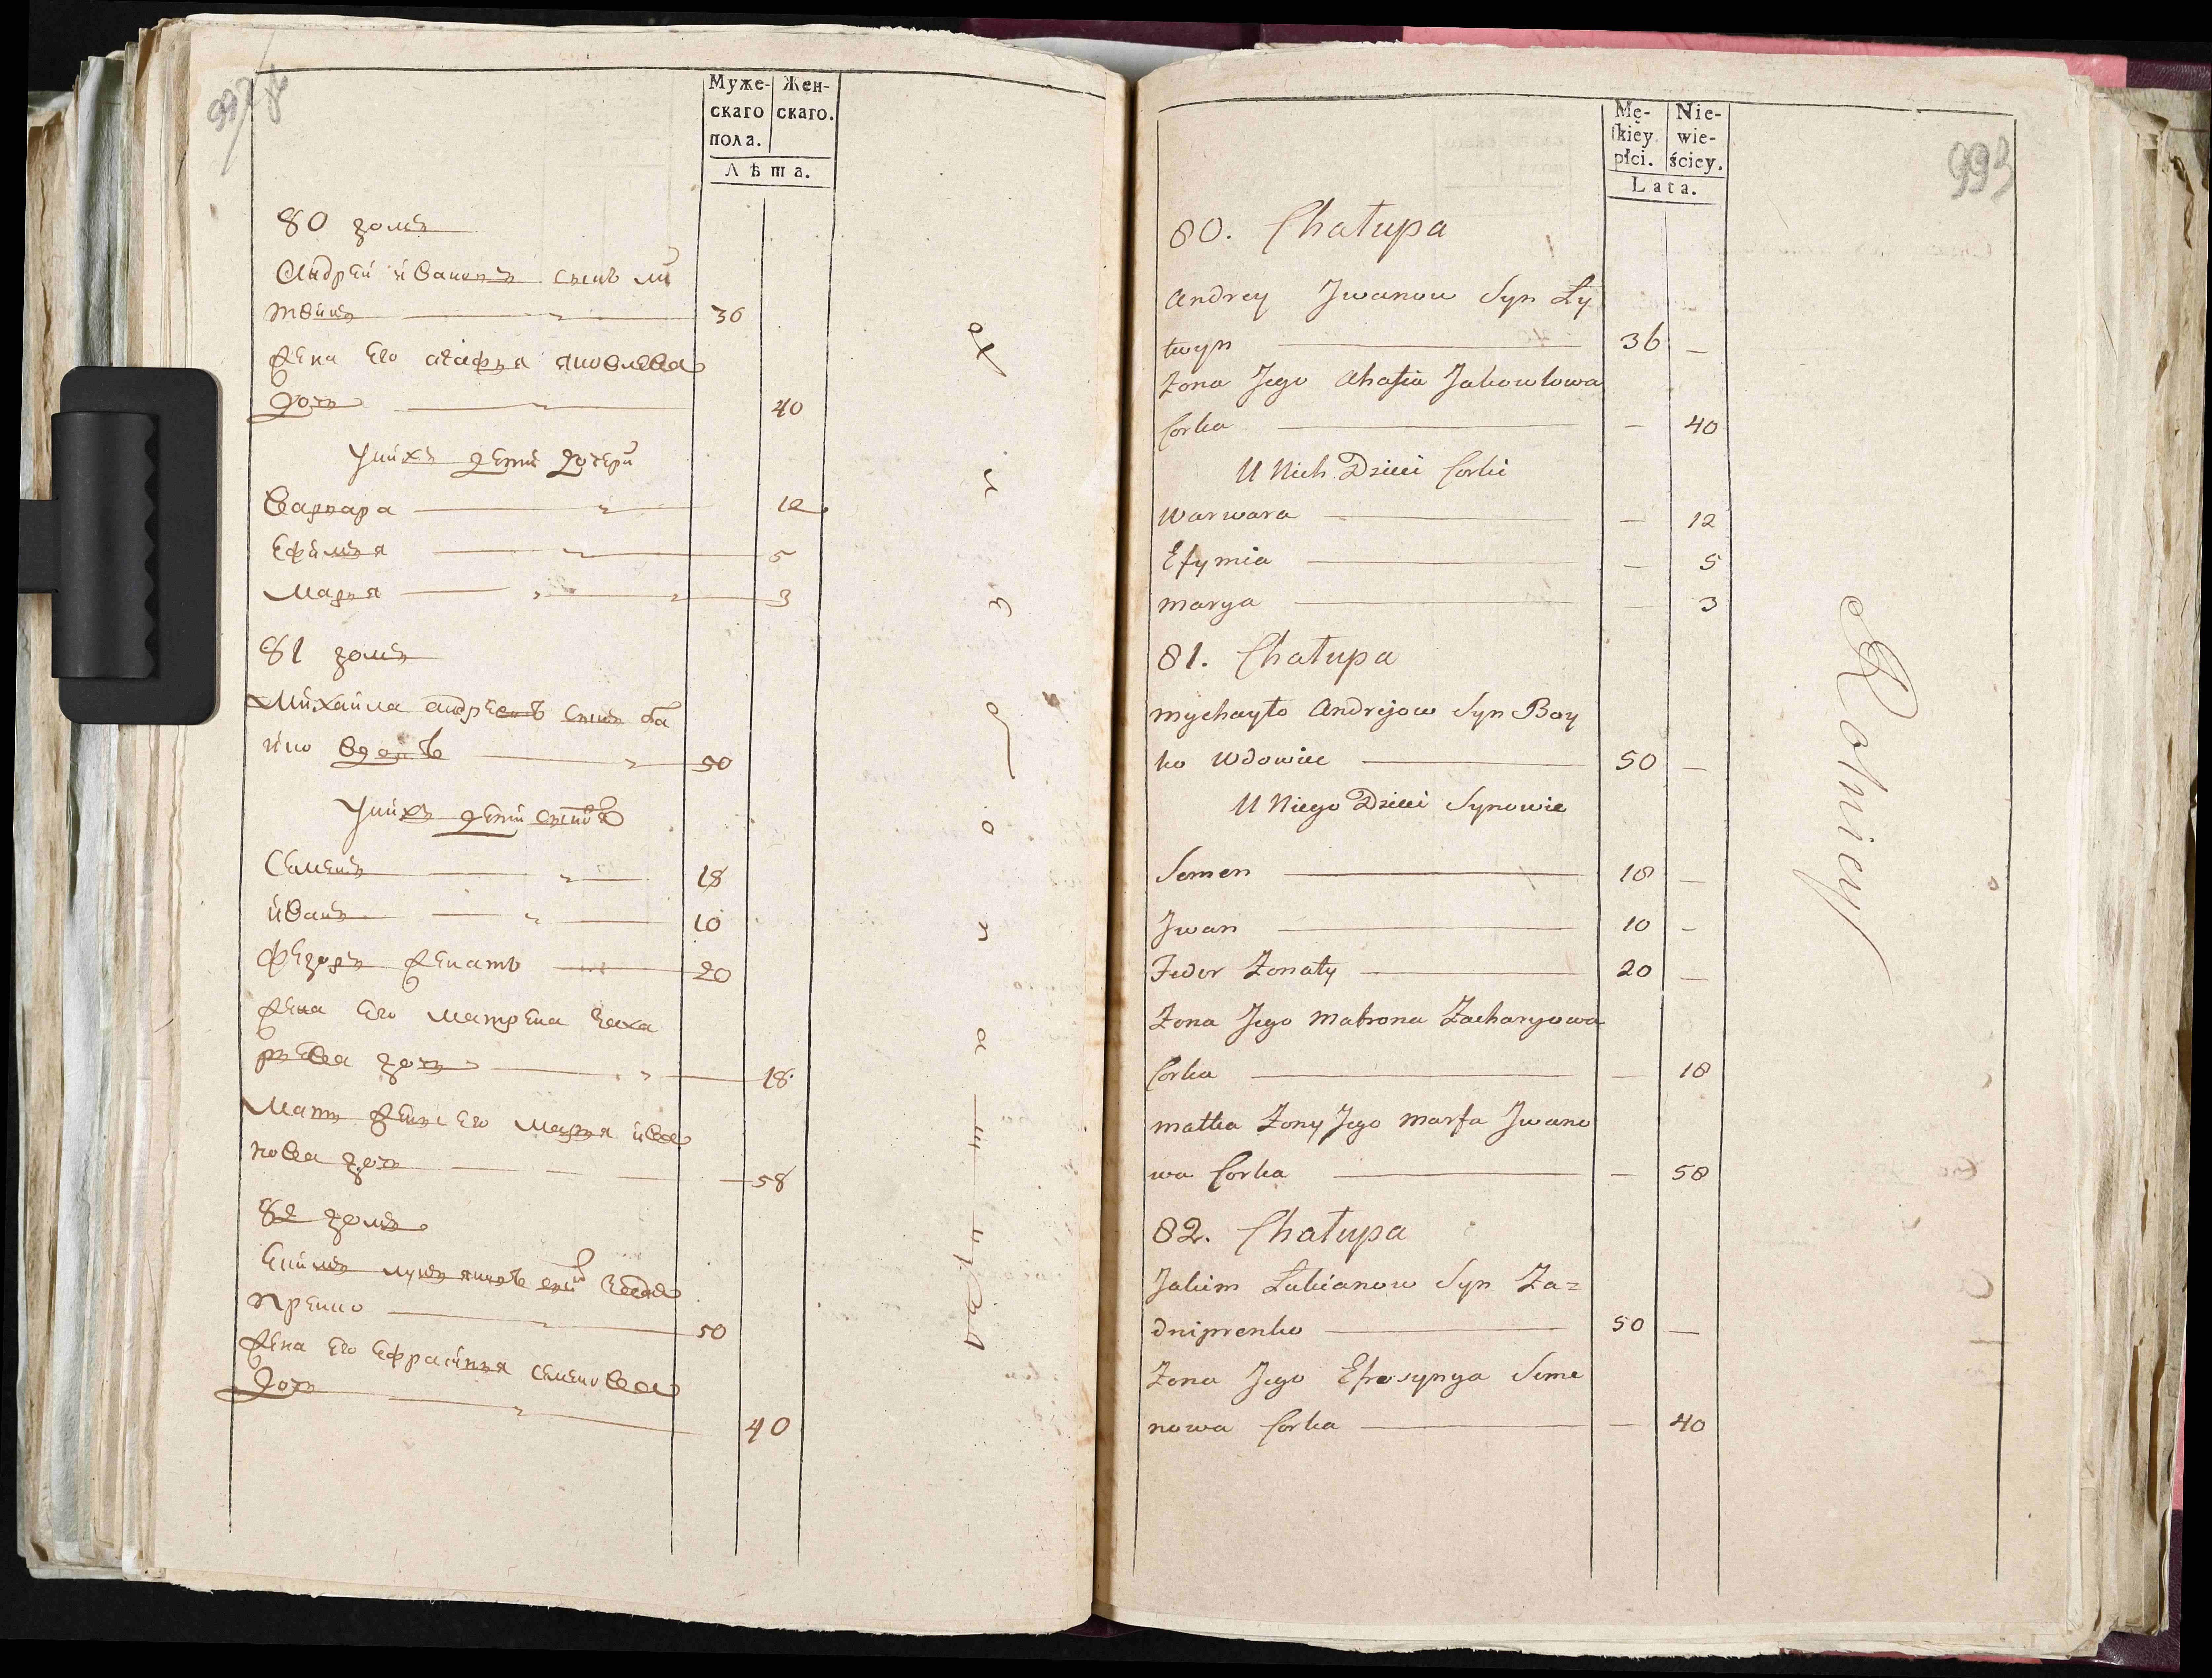 Муже-
скаго
пола.
Жен-
скаго.
Лѣта.
80 домъ
Андрей Ивановъ сынъ ли
твинъ 36
жена его агафия яковлева
дочь 40
У нихъ дети дочери
варвара 12
Ефимья 5
Марья 3
81 домъ
Михаила андреевъ сынъ ба
йко вдовъ 50
У нихъ дети
Семенъ 18
иванъ 10
Федоръ женатъ 20
жена его матрена заха
рьева дочь 18
Мать жены его марья ива
нова дочь 58
82 домъ
Екимъ сынъ задне
пренко 50
жена его ефросинья семенова
дочь 40
993
Mę-
skiey
płci.
Nie-
wie-
ściey.
Lata.
80. Chałupa
Andrey Jwanow Syn Ły
twyn 36 —
Żona Jego Ahafia Jakowlowa
Corka — 40
U Nich Dzieci Corki
Warwara — 12
Efymia — 5
Marya — 3
81. Chałupa
Mychayło Andrejow Syn Boy
ko Wdowiec 50 —
U Niego Dzieci Synowie
Semen 18 —
Jwan 10 —
Fedor Żonaty 20 —
Żona Jego Matrona Zacharyowa
Corka — 18
Matka Żony Jego Marfa Jwano
wa Corka — 58
82. Chałupa
Jakim Łukianow Syn Za=
dniprenko 50 —
Żona Jego Efrosynya Seme
nowa Corka — 40
Rolnicy